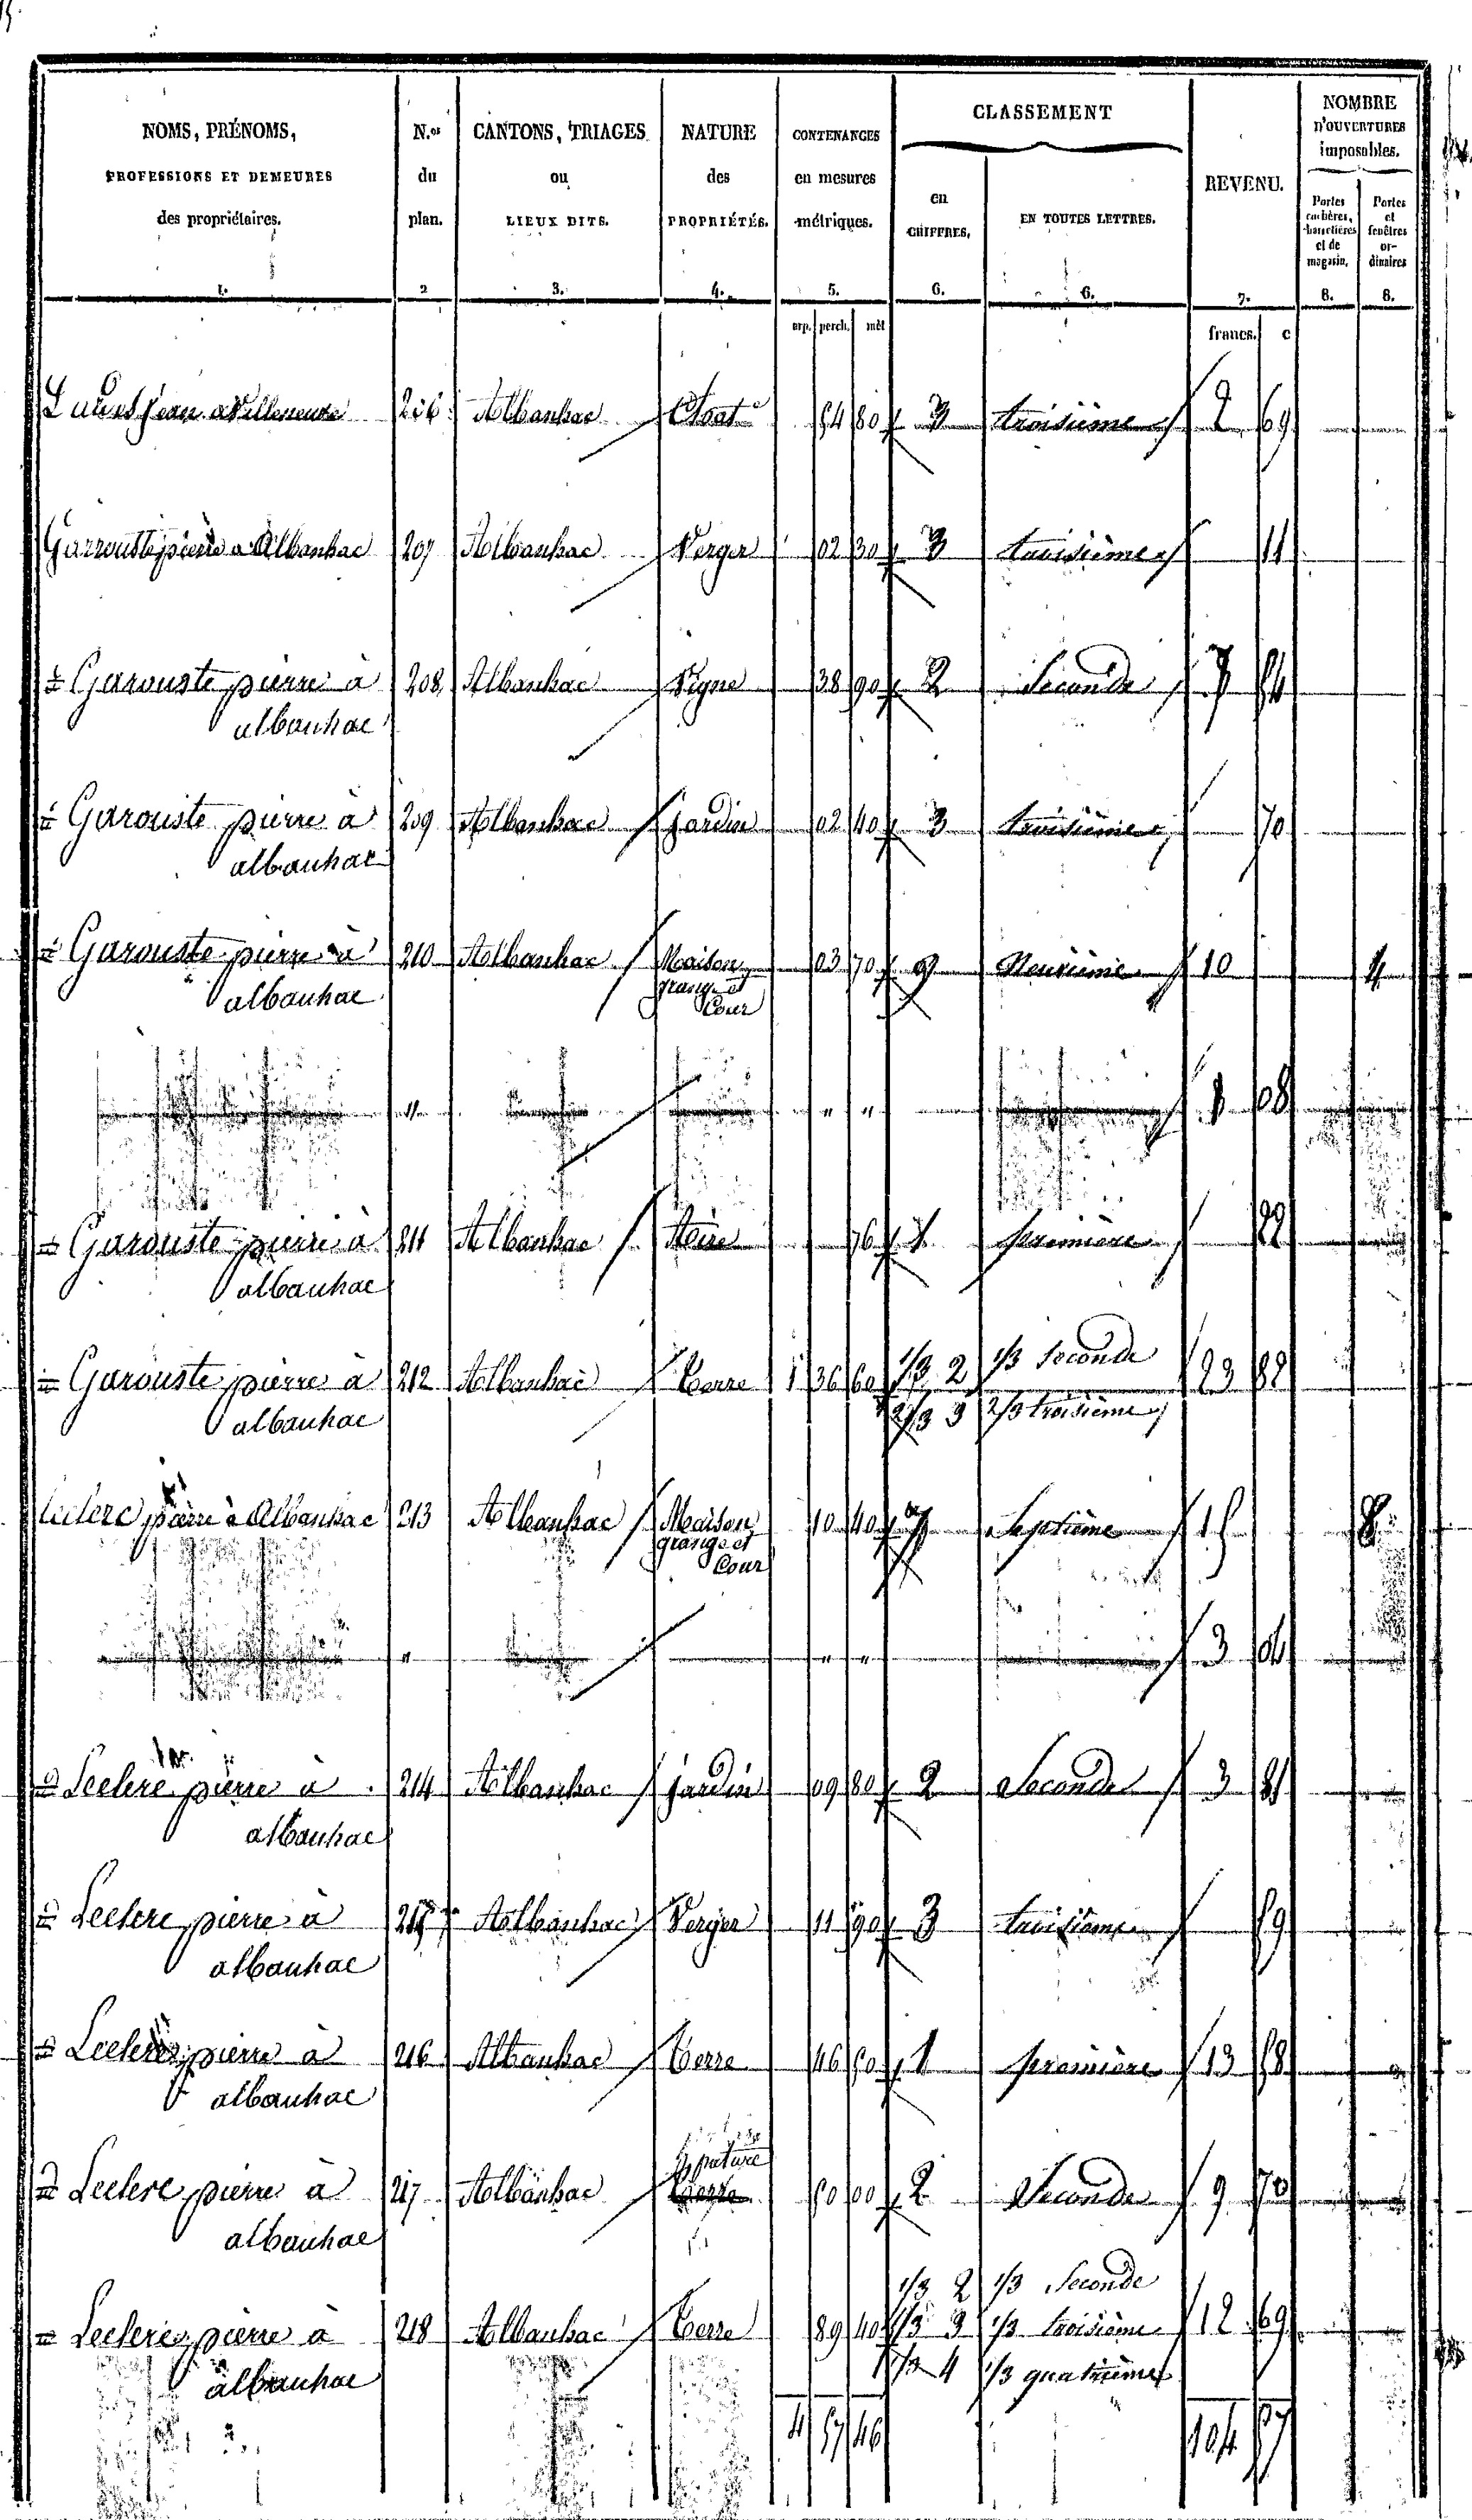 NOMS, PRÉNOMS,
PROFESSIONS ET DEMEURES
des propriétaires.
1.
N.os
du
plan.
2
CANTONS, TRIAGES
ou
LIEUX DITS.
3.
NATURE
des
PROPRIÉTÉS.
4.
CONTENANCES
en mesures
métriques.
5.
CLASSEMENT
en
CHIFFRES.
6.
EN TOUTES LETTRES.
6.
REVENU.
7.
NOMBRE
D'OUVERTURES
imposables.
Portes
cochères,
charretières
et de
magasin.
8.
Portes
et
fenêtres
or-
dinaires
8.
arp. perch. mèt francs. c
Jean a Villeneuve 206 Albanhac 54 80 3 troisième 2 69
Garrouste pierre a Albanhac 207 Albanhac Verger 02 30 3 troisième 11
= Garouste pierre à 208 Albanhac Vigne 38 90 2 Seconde 7
albanhac
= Garouste pierre à 209 Albanhac jardin 02 40 3 troisième 70
albanhac
= Garouste pierre à 210 Albanhac Maison 03 70 9 Neuvième 10 4
albanhac grange et
Cour
" " " 08
= Garouste pierre à 211 Albanhac 76 1 première
albanhac
= Garouste pierre à 212 Albanhac Terre 1 36 60 1/3 2 1/3 Seconde 23 82
albanhac 2/3 3 2/3 troisième
Leclerc pierre à Albanhac 213 Albanhac Maison 10 40 7 Septième 15 8
grange et
Cour
" " " 3 04
= Leclerc pierre à 214 Albanhac jardin 09 80 2 Seconde 3 81
albanhac
= Leclerc pierre à 215 Albanhac Verger 11 90 3 troisième 59
albanhac
= Leclerc pierre à 216 Albanhac Terre 46 60 1 première 13 58
albanhac
= Leclerc pierre à 217 Albanhac pature 50 00 2 Seconde 9 70
albanhac Terre
= Leclerc pierre à 218 Albanhac Terre 89 40 1/3 2 1/3 Seconde 12 69
albanhac 1/3 3 1/3 troisième
1/3 4 1/3 quatrième
4 57 46 104 57